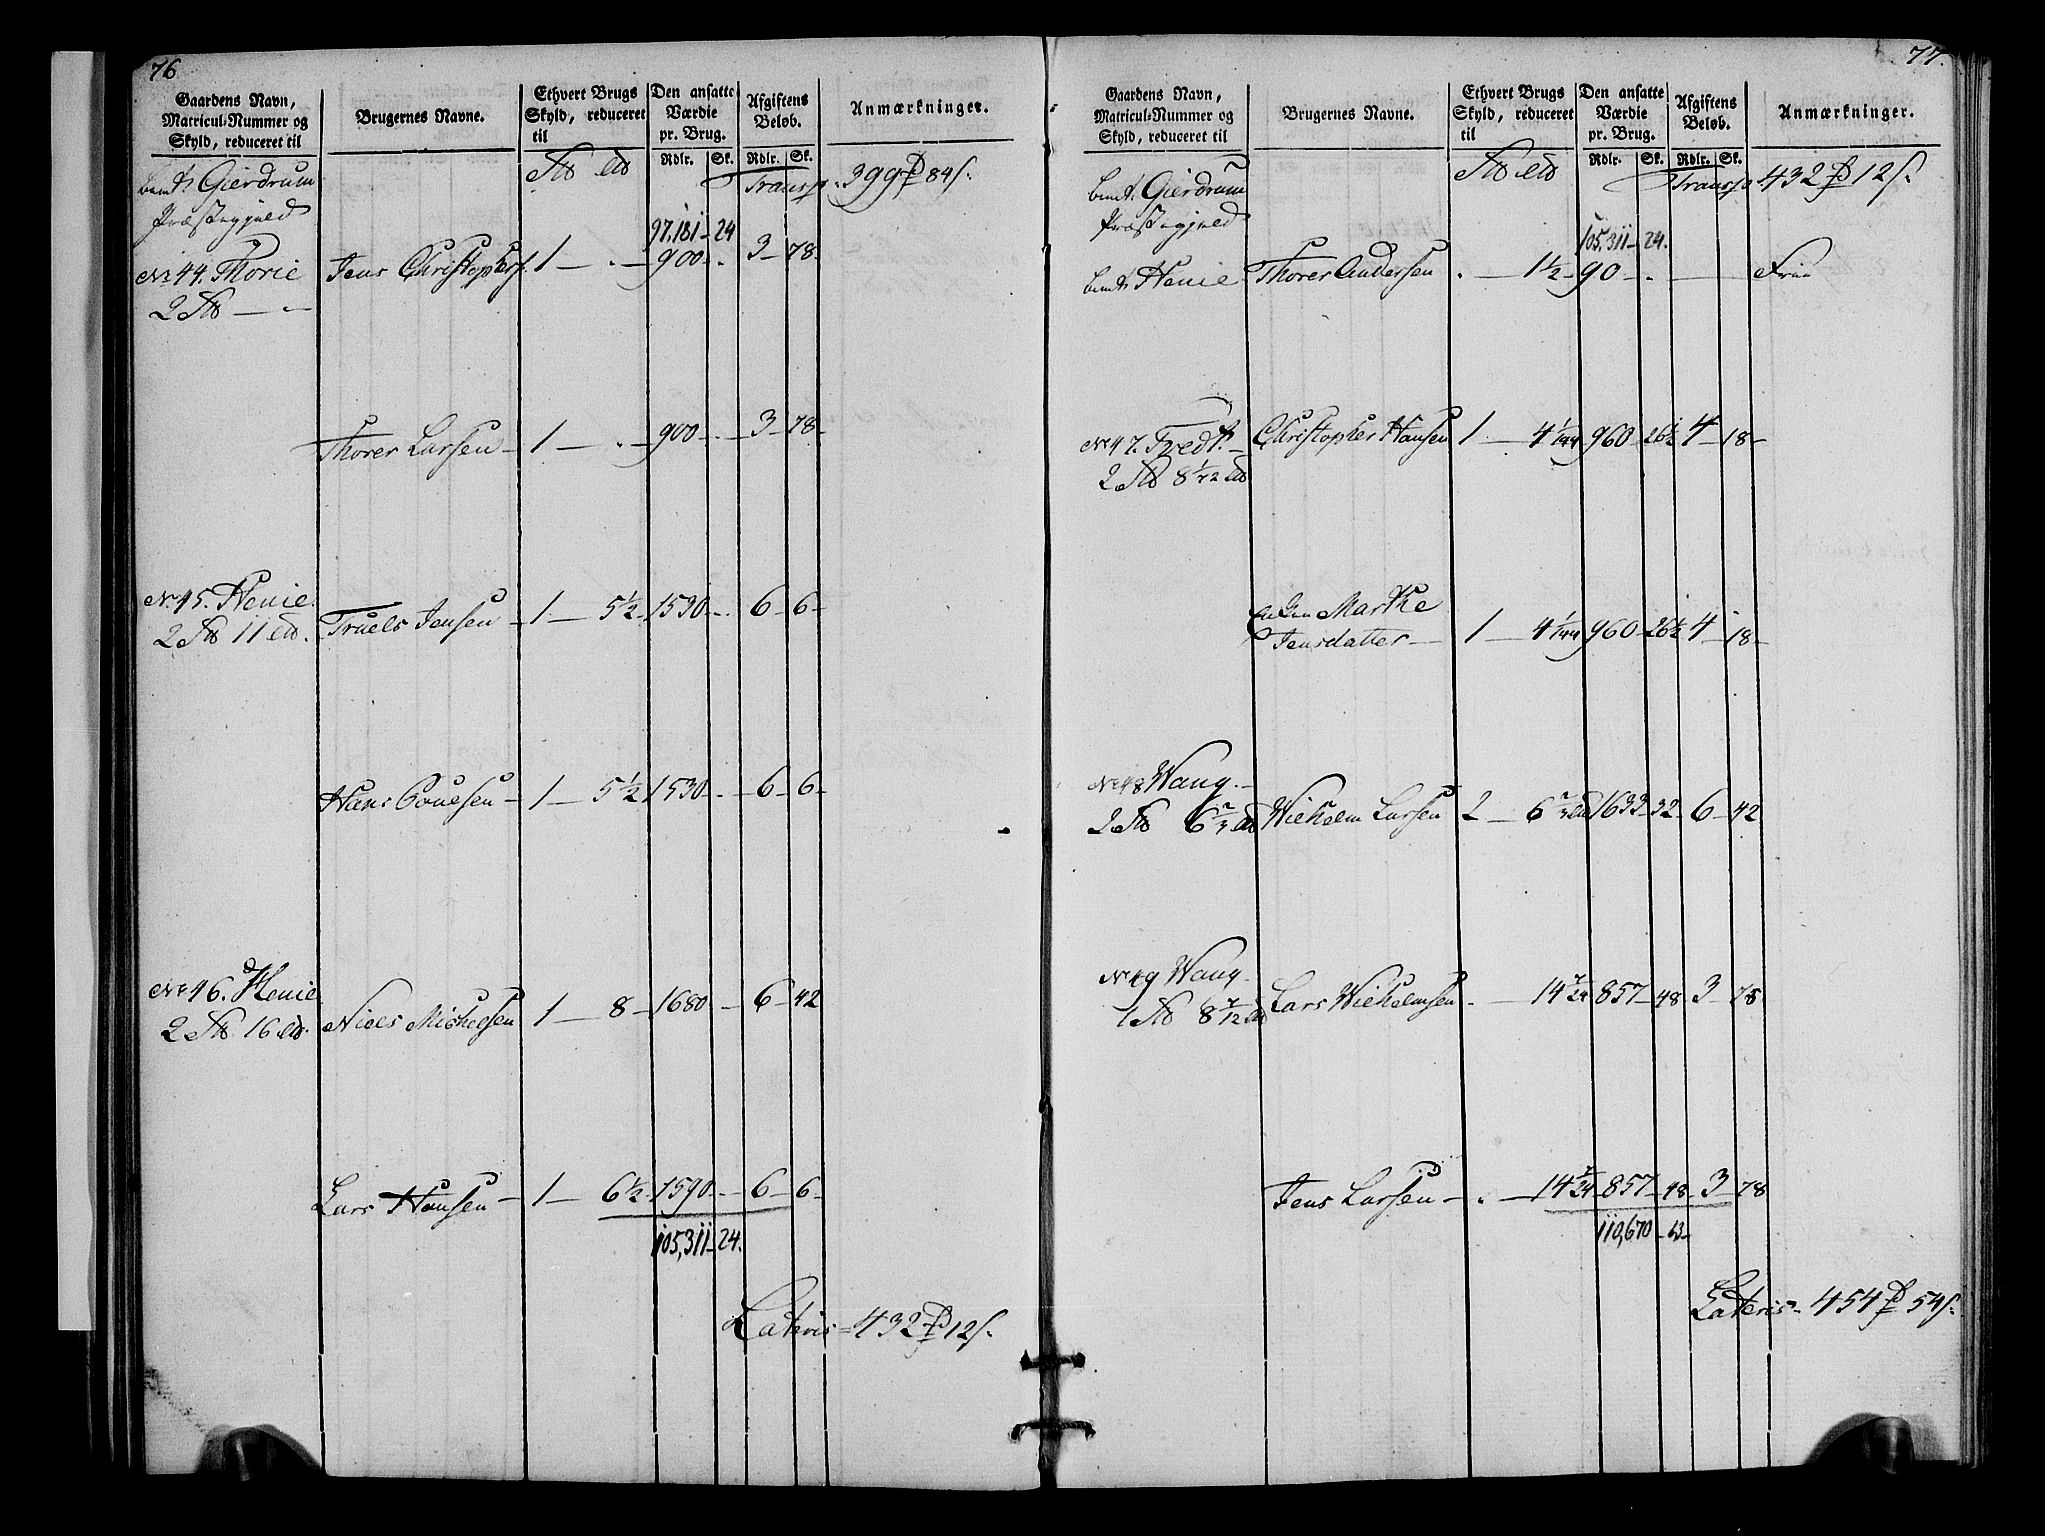 76
Gaardens Navn, Matricul-Nummer og Skyld, reduceret til | Brugernes Navne. | Ethvert Brugs Skyld, reduceret til | Den ansatte Værdie pr. Brug. Rdlr. Sk. | Afgiftens Beløb. Rdlr. Sk. | Anmærkninger.
bemts Gierdrum Transp. 399 84 s.
Præstegjeld
97,181 - 24
No 44. Thorie Jens Christophers. 1 - . - 900 - . 3 - 78 -
2
Thorer Larsen - 1 - . - 900 - . - 3 - 78 -
No 45. Henie. Truels Jensen - 1 - 5½ - 1530 - . 6 - 6 -
2 11
Hans Povelsen - 1 - 5½ 1530 - . 6 - 6 -
No 46. Henie Niels Michelsen 1 - 8 - 1680 - 6 - 42
2 16
Lars Hansen - 1 - 6½ - 1590 - . - 6 - 6 -
105,311 - 24.
Lateris = 432 12 s.
77.
Gaardens Navn, Matricul-Nummer og Skyld, reduceret til | Brugernes Navne. | Ethvert Brugs Skyld, reduceret til | Den ansatte Værdie pr. Brug. Rdlr. Sk. | Afgiftens Beløb. Rdlr. Sk. | Anmærkninger.
bemt. Gierdrum Transp 432 12 s.
Præstegjeld
105,311 - 24.
bemts Henie Thorer Andersen . - 1½ - 90 - . Frie
No 47. Tvedt. - Christopher Hansen 1 . - 4 1/144 960 - 26½ 4 - 18 -
2 8 1/72
Enken Marthe
Jensdatter - 1 - 4 1/144 960 - 26½ 4 - 18 -
No 48 Wang. -
2 6 2/3 Wilhelm Larsen 2 - 6 2/3 1633 - 32 - 6 - 42
No 49 Wang. Lars Wilhelmsen . - 14 7/24 857 - 48 3 - 78
1 8 7/12
Jens Larsen - . - 14 7/24 857 - 48 - 3 - 78
110,670 - 13 -
Lateris - 454 54 s.